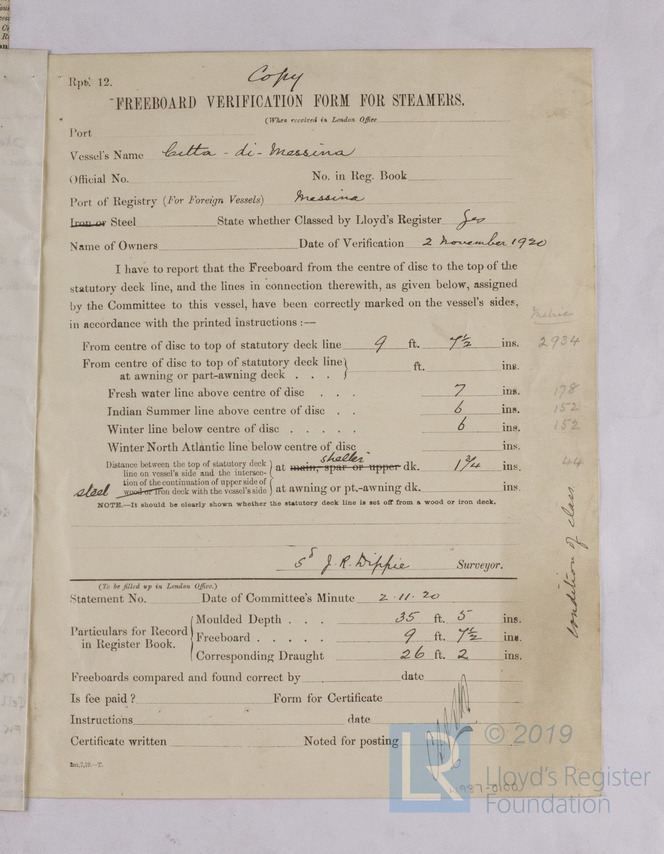 Rpt. 12.
Copy
FREEBOARD VERIFICATION FORM FOR STEAMERS.
(When received in London Office
Port
Vessel's Name Citta - di - Messina
Official No. No. in Reg. Book
Port of Registry (For Foreign Vessels) Messina
Iron or Steel State whether Classed by Lloyd's Register Yes
Name of Owners Date of Verification 2 November 1920
I have to report that the Freeboard from the centre of disc to the top of the
statutory deck line, and the lines in connection therewith, as given below, assigned
by the Committee to this vessel, have been correctly marked on the vessel's sides,
in accordance with the printed instructions :—
Metric
From centre of disc to top of statutory deck line 9 ft. 7½ ins. 2934
From centre of disc to top of statutory deck line
at awning or part-awning deck . . . ft. ins.
Fresh water line above centre of disc . . . 7 ins. 178
Indian Summer line above centre of disc . . 6 ins. 152
Winter line below centre of disc . . . . . 6 ins. 152
Winter North Atlantic line below centre of disc ins.
Distance between the top of statutory deck
line on vessel's side and the intersec-
tion of the continuation of upper side of
steel wood or iron deck with the vessel's side
shelter
at main, spar or upper dk. 1¾ ins. 44
at awning or pt.-awning dk. ins.
NOTE.—It should be clearly shown whether the statutory deck line is set off from a wood or iron deck.
condition of class.
sd J. R. Dippie Surveyor.
(To be filled up in London Office.)
Statement No. Date of Committee's Minute 2.11.20
Particulars for Record
in Register Book.
Moulded Depth . . . 35 ft. 5 ins.
Freeboard . . . . . 9 ft. 7½ ins.
Corresponding Draught 26 ft. 2 ins.
Freeboards compared and found correct by date
Is fee paid ? Form for Certificate
Instructions date
Certificate written Noted for posting
LR © 2019
Lloyd's Register
Foundation